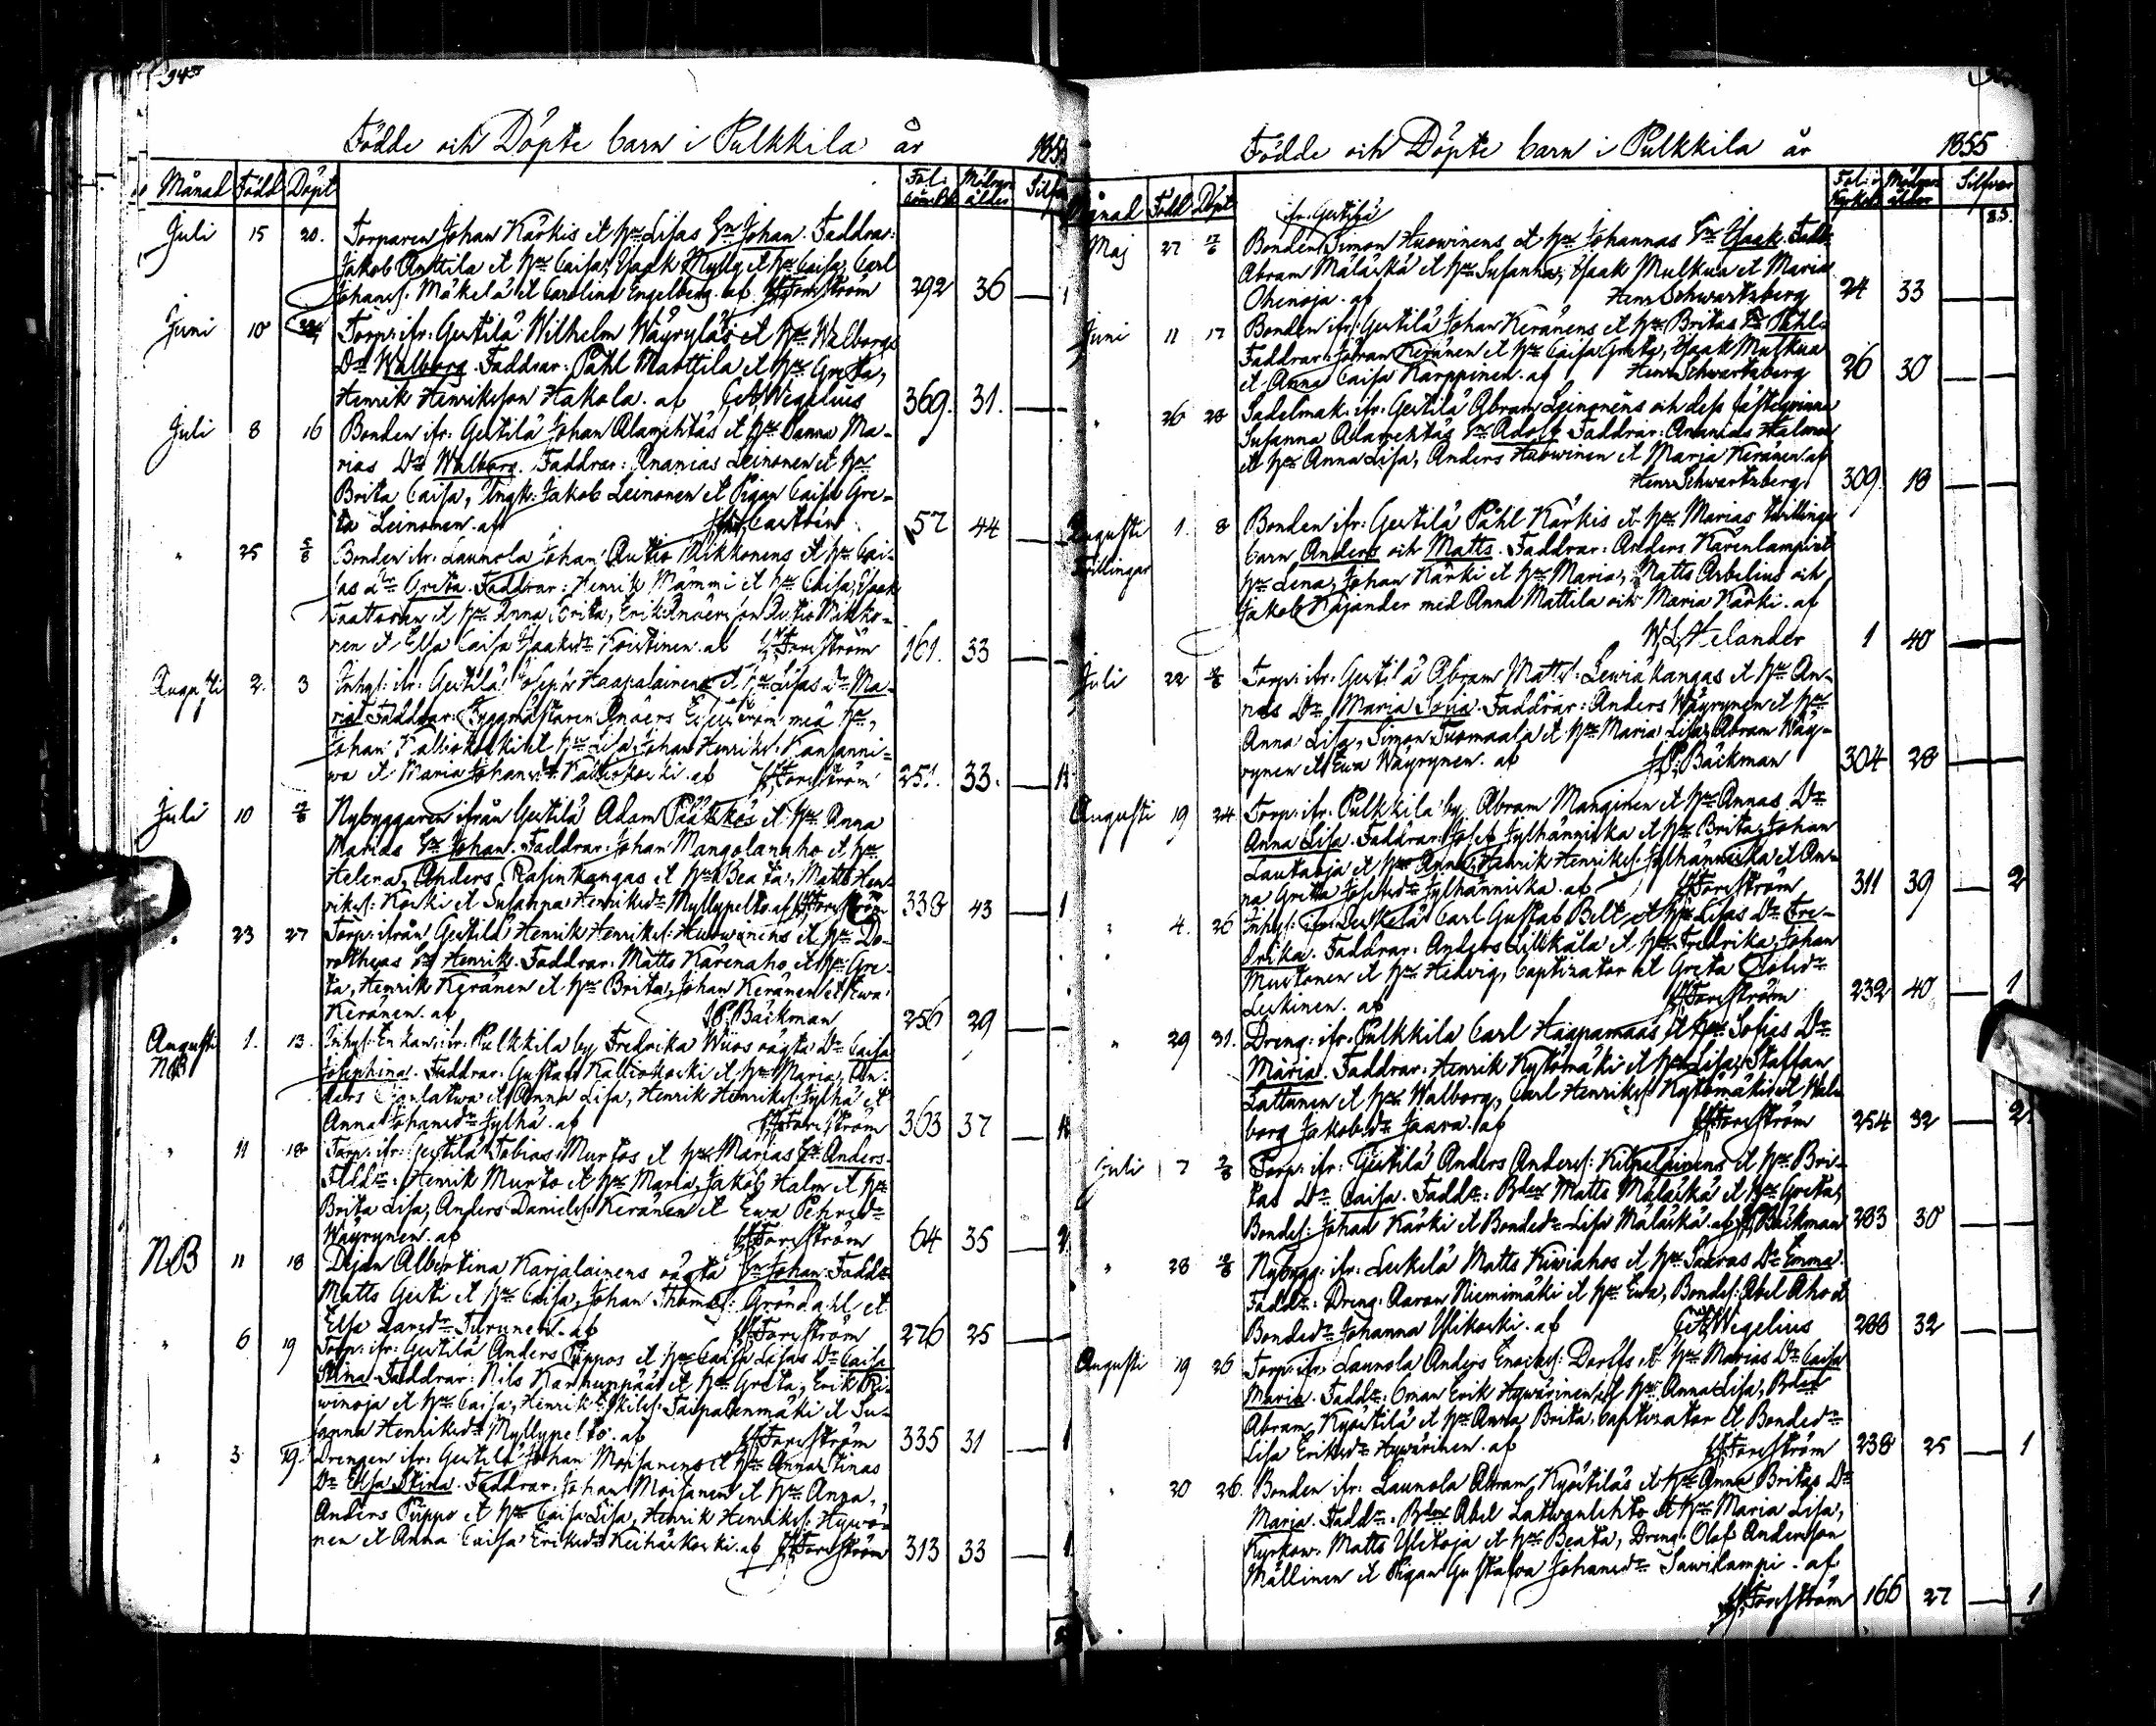 Födde och Döpte barn i Pulkkila år 1855
Månad Född Döpt Fol: Modrens ålder Silfver
Juli 15 20. Torparen Johan Kärkis et h:s Lisas Sn Johan. Faddrar:
Jakob Anttila et h:s Caisa, Isaak Mylly et h:s Caisa, Carl
Johans: Mäkelä et Carolina Engelberg. af Forsström 292 36 — 1
Juni 10 Torp: ifr: Gertilä Wilhelm Wäyryläs et h:s Walborgs
Dr Walborg. Faddrar: Påhl Marttila et h:s Greta,
Henrik Henriksson Hakola. af Wegelius 369. 31. —
Juli 8 16 Bonden ifr: Gertilä Johan Alamehtäs et h:s Ma-
rias Dr Walborg. Faddrar: Ananias Leinonen et h:s
Brita Caisa, Yngl: Jakob Leinonen et Pigan Caisa Gre-
ta Leinonen. af Castrén 57 44 —
" 25 5/8 Bonden ifr: Launola Johan Autio Mikkonens et h:s Cai-
sas Dr Greta. Faddrar: Henrik Mämmi et h:s Caisa, Isaak
et h:s Anna Brita, Erik Andersson Autio Mikko-
nen et Elsa Caisa Isaksdr Koistinen. af Forsström 161. 33 —
Augusti 2. 3 Inhys: ifr: Gertilä Josef Haapalainens et h:s Lisas Dr Ma-
ria. Faddrar: Byggmästaren Anders med h:s,
Johan Kalliokoski et h:s Lisa, Johan Henriks: Kansanni-
wa et Maria Johansdr Kalliokoski. af Forsström 251. 33. —
Juli 10 Nybyggaren ifrån Gertilä Adam Pääkkös et h:s Anna
Marias Sn Johan. Faddrar: Johan Mangolanaho et h:s
Helena, Anders Rasinkangas et h:s Beata, Matts Hen-
riks: Koski et Susanna Henriksdr Myllypelto. af Forsström 338 43 — 1
" 23 27 Torp: ifrån Gertilä Henrik Henriks: Huowinens et h:s Do-
rotheas Sn Henrik. Faddrar: Matts Kärenaho et h:s Gre-
ta, Henrik Keränen et h:s Brita, Johan Keränen et Ewa
Keränen. af Bäckman 256 29 —
Augusti 1. 13. Inhys: Enkan ifr: Pulkkila by Fredrika oägta Dr Caisa
NB Josephina. Faddrar: Gustaf Kalliokoski et h:s Maria, An-
ders et Anna Lisa, Henrik Henriks: Jylhä et
Anna Johansdr Jylhä. af Forsström 363 37 —
" 11 18 Torp: ifr: Gertilä Tobias Murtos et h:s Marias Sn Anders.
Faddr: Henrik Murto et h:s Maria, Jakob Halm et h:s
Brita Lisa, Anders Daniels: Keränen et Ewa Pehrsdr
Wäyrynen. af Forsström 64 35 — 2
NB 11 18 Pigan Albertina Karjalainens oägta Sn Johan. Faddr:
Matts Gerti et h:s Caisa, Johan Thomas: Gröndahl et
Elsa Larsdr Turunen. af Forsström 276 25 —
" 6 19 Torp: ifr: Gertilä Anders Puppos et h:s Caisa Lisas Dr Caisa
Stina. Faddrar: Nils Karhunpää et h:s Greta, Erik Ri-
winoja et h:s Caisa, Henrik Eskils: Taipalenmäki et Su-
sanna Henriksdr Myllypelto. af Forsström 335 31 — 1
" 3 19. Drengen ifr: Gertilä Johan Moisanens et h:s Anna Stinas
Dr Elsa Stina. Faddrar: Johan Moisanen et h:s Anna,
Anders Puppo et h:s Caisa Lisa, Henrik Henriks: Hywö-
nen et Anna Caisa Eriksdr Keihäskoski. af Forsström 313 33 — 1
Födde och Döpte barn i Pulkkila år 1855
Månad Född Döpt Fol: i Kyrkob: Modrens ålder Silfver
ifr: Gertilä
Maj 27 17/6 Bonden Simon Huowinens et h:s Johannas Sn Isaak. Faddr:
Abram Mäläskä et h:s Susanna, Isaak Mulkua et Maria
Ohenoja. af Henr Schwartzberg 24 33 —
Juni 11 17 Bonden ifr: Gertilä Johan Keränens et h:s Britas Sn Påhl.
Faddrar: Göran Keränen et h:s Caisa Greta, Isaak Mulkua
et Anna Caisa Karppinen. af Henr Schwartzberg 26 30 —
" 26 28 Sadelmak: ifr: Gertilä Abram Leinonens och dess fästeqvinna
Susanna Alamehtäs Sn Adolf. Faddrar: Ananias Halonen
et h:s Anna Lisa, Anders Huowinen et Maria Keränen. af
Henr Schwartzberg 309. 18 —
Augusti 1. 8 Bonden ifr: Gertilä Påhl Kärkis et h:s Marias twillinge
Twillingar barn Anders och Matts. Faddrar: Anders Kärenlampi et
h:s Lena, Johan Kärki et h:s Maria, Matts Arbelius och
Jakob Kajander med Anna Mattila och Maria Kärki. af
W. L. Helander 1 40 —
Juli 22 Torp: ifr: Gertilä Abram Matts: Lewiäkangas et h:s An-
nas Dr Maria Sofia. Faddrar: Anders Wäyrynen et h:s
Anna Lisa, Simon Tuomaala et h:s Maria Lisa, Abram Wäy-
rynen et Ewa Wäyrynen. af Bäckman 304 28 —
Augusti 19 24 Torp: ifr: Pulkkila by Abram Manginen et h:s Annas Dr
Anna Lisa. Faddrar: Josef Jylhänniska et h:s Brita, Johan
Lautaoja et h:s Anna, Henrik Henriks: Jylhänniska et An-
na Greta Josefsdr Jylhänniska. af Forsström 311 39 — 2
" 4. 26 Inhys: ifr: Leskelä Carl Gustaf Belt et h:s Lisas Dr Fre-
drika. Faddrar: Anders Lillkåla et h:s Fredrika, Johan
Mustonen et h:s Hedvig, baptizator et Greta Olofsdr
Leskinen. af Forsström 232 40 — 1
" 29 31. Dreng: ifr: Pulkkila Carl Haapamaas et h:s Sofias Dr
Maria. Faddrar: Henrik Kytömäki et h:s Lisa, Staffan
Lattunen et h:s Walborg, Carl Henriks: Kytömäki et Wal-
borg Jakobsdr Jaara. af Forsström 254 32 — 2
Juli 7 Torp: ifr: Gertilä Anders Anders: Kilpeläinens et h:s Bri-
tas Dr Caisa. Faddr: Bden Matts Mäläskä et h:s Greta,
Bondes: Johan Kärki et Bondedr Lisa Mäläskä. af Bäckman 283 30 —
" 28 Nybygg: ifr: Leskelä Matts Kiwiahos et h:s Saaras Dr Emma.
Faddr: Dreng: Aaron Niemimäki et h:s Ewa, Bondes: Abel Aho et
Bondedr Johanna Ylikoski. af Wegelius 288 32 —
Augusti 19 26 Torp: ifr: Launola Anders Enochs: Dorffs et h:s Marias Dr Caisa
Maria. Faddr: Erik Hywärinen et h:s Anna Lisa, Bden
Abram Kyöstilä et h:s Anna Brita, baptizator et Bondedr
Lisa Eriksdr Hywärinen. af Forsström 238 25 — 1
" 20 26. Bonden ifr: Launola Abram Kyöstiläs et h:s Anna Britas Dr
Maria. Faddr: Bden Abel Latwanlehto et h:s Maria Lisa,
Kyrkow: Matts Ylitoja et h:s Beata, Dreng: Olof Andersson
Mällinen et Pigan Gustafva Johansdr Sawilampi. af
Forsström 166 27 — 1